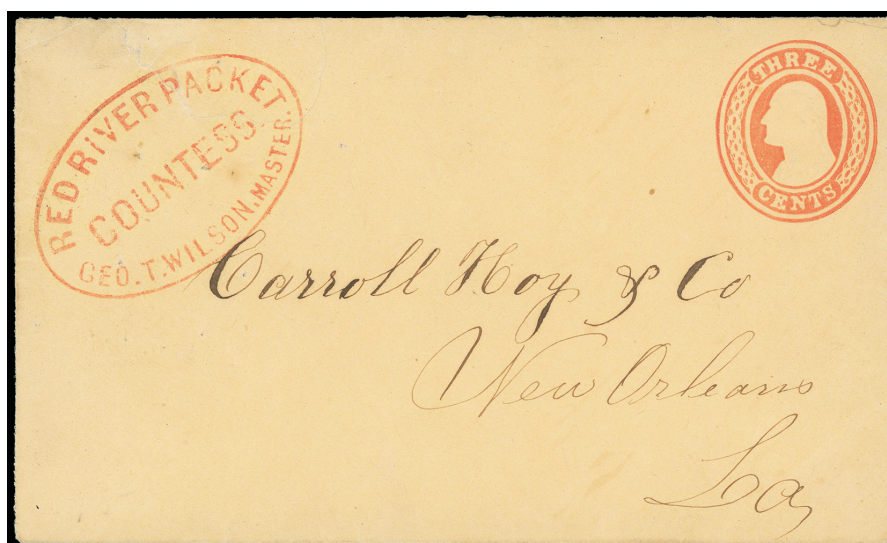 RED RIVER PACKET
COUNTESS
GEO. T. WILSON, MASTER.
THREE
CENTS
Carroll Hoy & Co
New Orleans
La